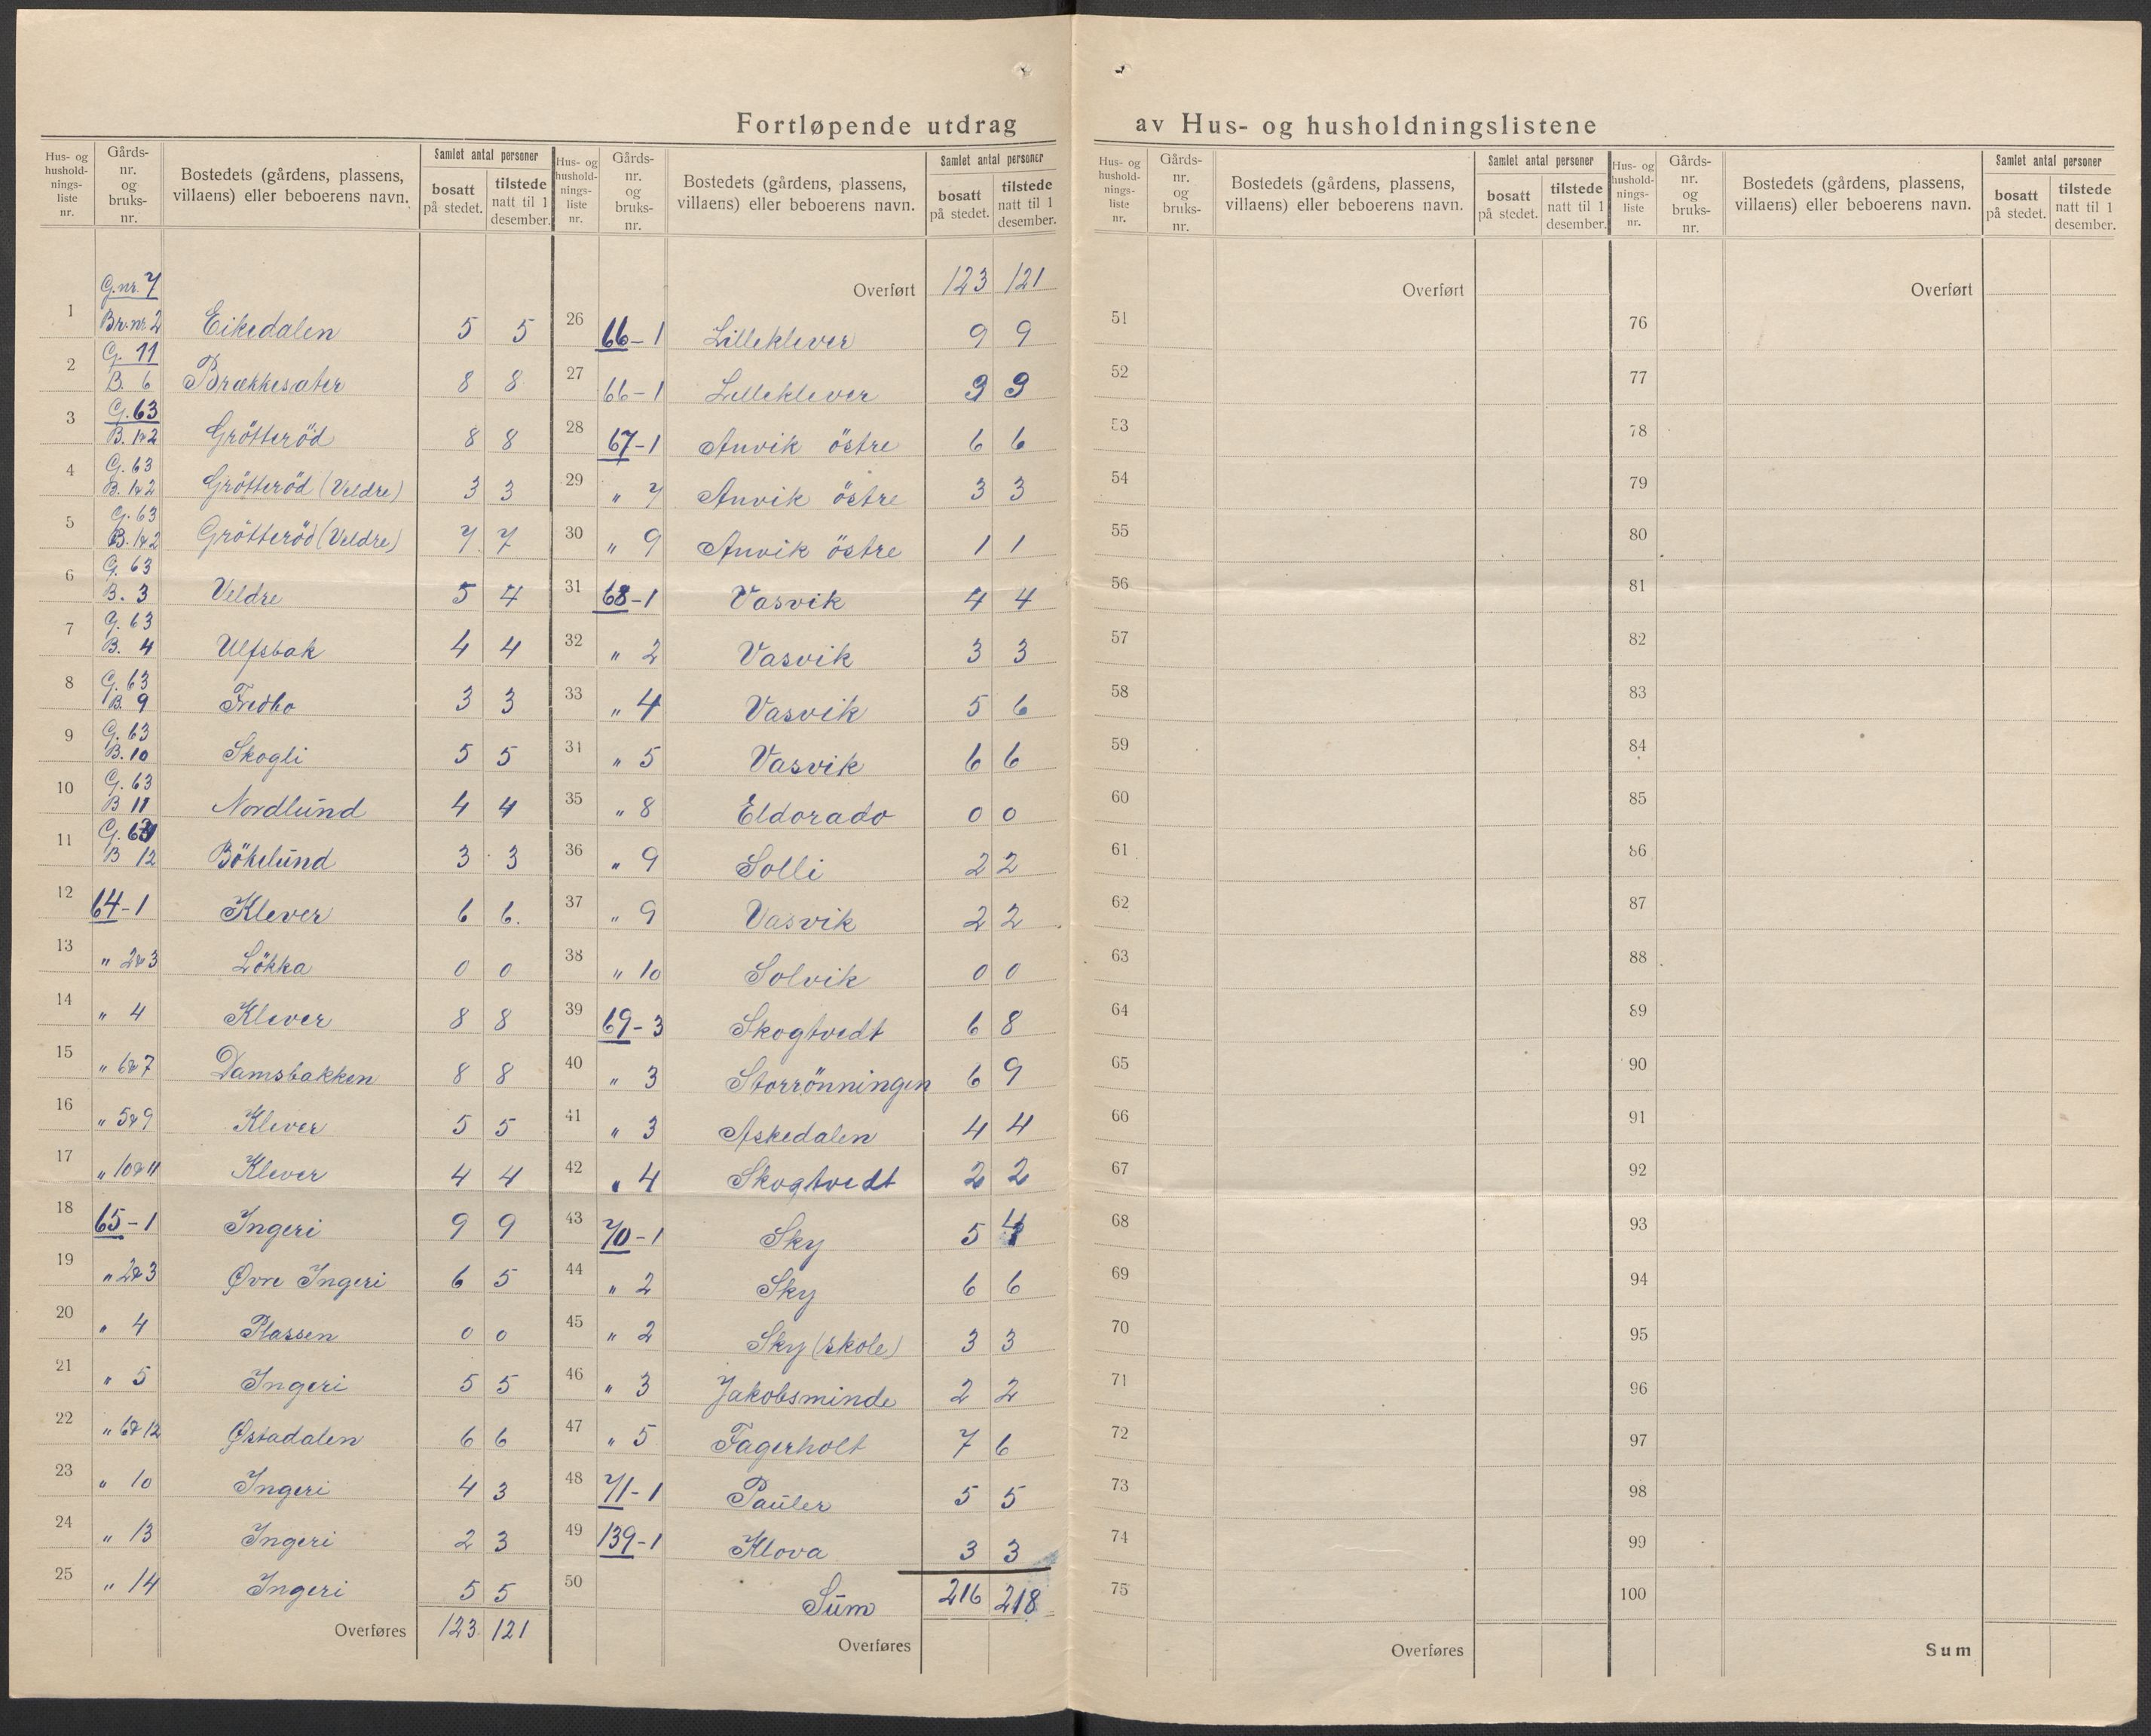 Fortløpende utdrag av Hus- og husholdningslistene
Hus- og husholdnings-liste nr. | Gårds-nr. og bruks-nr. | Bostedets (gårdens, plassens, villaens) eller beboerens navn. | Samlet antal personer: bosatt på stedet. | tilstede natt til 1 desember.
1 G.nr. 7 Br.nr. 2 Eikedalen 5 5
2 G. 11 B. 6 Brækkesæter 8 8
3 G. 63 B. 1&2 Grötteröd 8 8
4 G. 63 B. 1&2 Grötteröd (Veldre) 3 3
5 G. 63 B. 1&2 Grötteröd (Veldre) 7 7
6 G. 63 B. 3 Veldre 5 4
7 G. 63 B. 4 Ulfsbak 4 4
8 G. 63 B. 9 Fredbo 3 3
9 G. 63 B. 10 Skogli 5 5
10 G. 63 B 11 Nordlund 4 4
11 G. 63 B 12 Bökelund 3 3
12 64-1 Klever 6 6.
13 " 2&3 Lökka 0 0
14 " 4 Klever 8 8
15 " 6&7 Damsbakken 8 8
16 " 5&9 Klever 5 5
17 " 10&11 Klever 4 4
18 65-1 Ingeri 9 9
19 " 2&3 Øvre Ingeri 6 5
20 " 4 Plassen 0 0
21 " 5 Ingeri 5 5
22 " 6&12 Østadalen 6 6
23 " 10 Ingeri 4 3
24 " 13 Ingeri 2 3
25 " 14 Ingeri 5 5
Overføres 123 121
Hus- og husholdnings-liste nr. | Gårds-nr. og bruks-nr. | Bostedets (gårdens, plassens, villaens) eller beboerens navn. | Samlet antal personer: bosatt på stedet. | tilstede natt til 1 desember.
Overført 123 121
26 66-1 Lilleklever 9 9
27 66-1 Lilleklever 9 9
28 67-1 Anvik östre 6 6
29 " 7 Anvik östre 3 3
30 " 9 Anvik östre 1 1
31 68-1 Vasvik 4 4
32 " 2 Vasvik 3 3
33 " 4 Vasvik 5 6
34 " 5 Vasvik 6 6
35 " 8 Eldorado 0 0
36 " 9 Solli 2 2
37 " 9 Vasvik 2 2
38 " 10 Solvik 0 0
39 69-3 Skogtvedt 6 8
40 " 3 Storrönningen 6 9
41 " 3 Askedalen 4 4
42 " 4 Skogtvedt 2 2
43 70-1 Sky 5 4
44 " 2 Sky 6 6
45 " 2 Sky (skole) 3 3
46 " 3 Jakobsminde 2 2
47 " 5 Fagerholt 7 6
48 71-1 Pauler 5 5
49 139-1 Klova 3 3
50 Sum 216 218
Overføres
Hus- og husholdnings-liste nr. | Gårds-nr. og bruks-nr. | Bostedets (gårdens, plassens, villaens) eller beboerens navn. | Samlet antal personer: bosatt på stedet. | tilstede natt til 1 desember.
Overført
51
52
53
54
55
56
57
58
59
60
61
62
63
64
65
66
67
68
69
70
71
72
73
74
75
Overføres
Hus- og husholdnings-liste nr. | Gårds-nr. og bruks-nr. | Bostedets (gårdens, plassens, villaens) eller beboerens navn. | Samlet antal personer: bosatt på stedet. | tilstede natt til 1 desember.
Overført
76
77
78
79
80
81
82
83
84
85
86
87
88
89
90
91
92
93
94
95
96
97
98
99
100
Sum